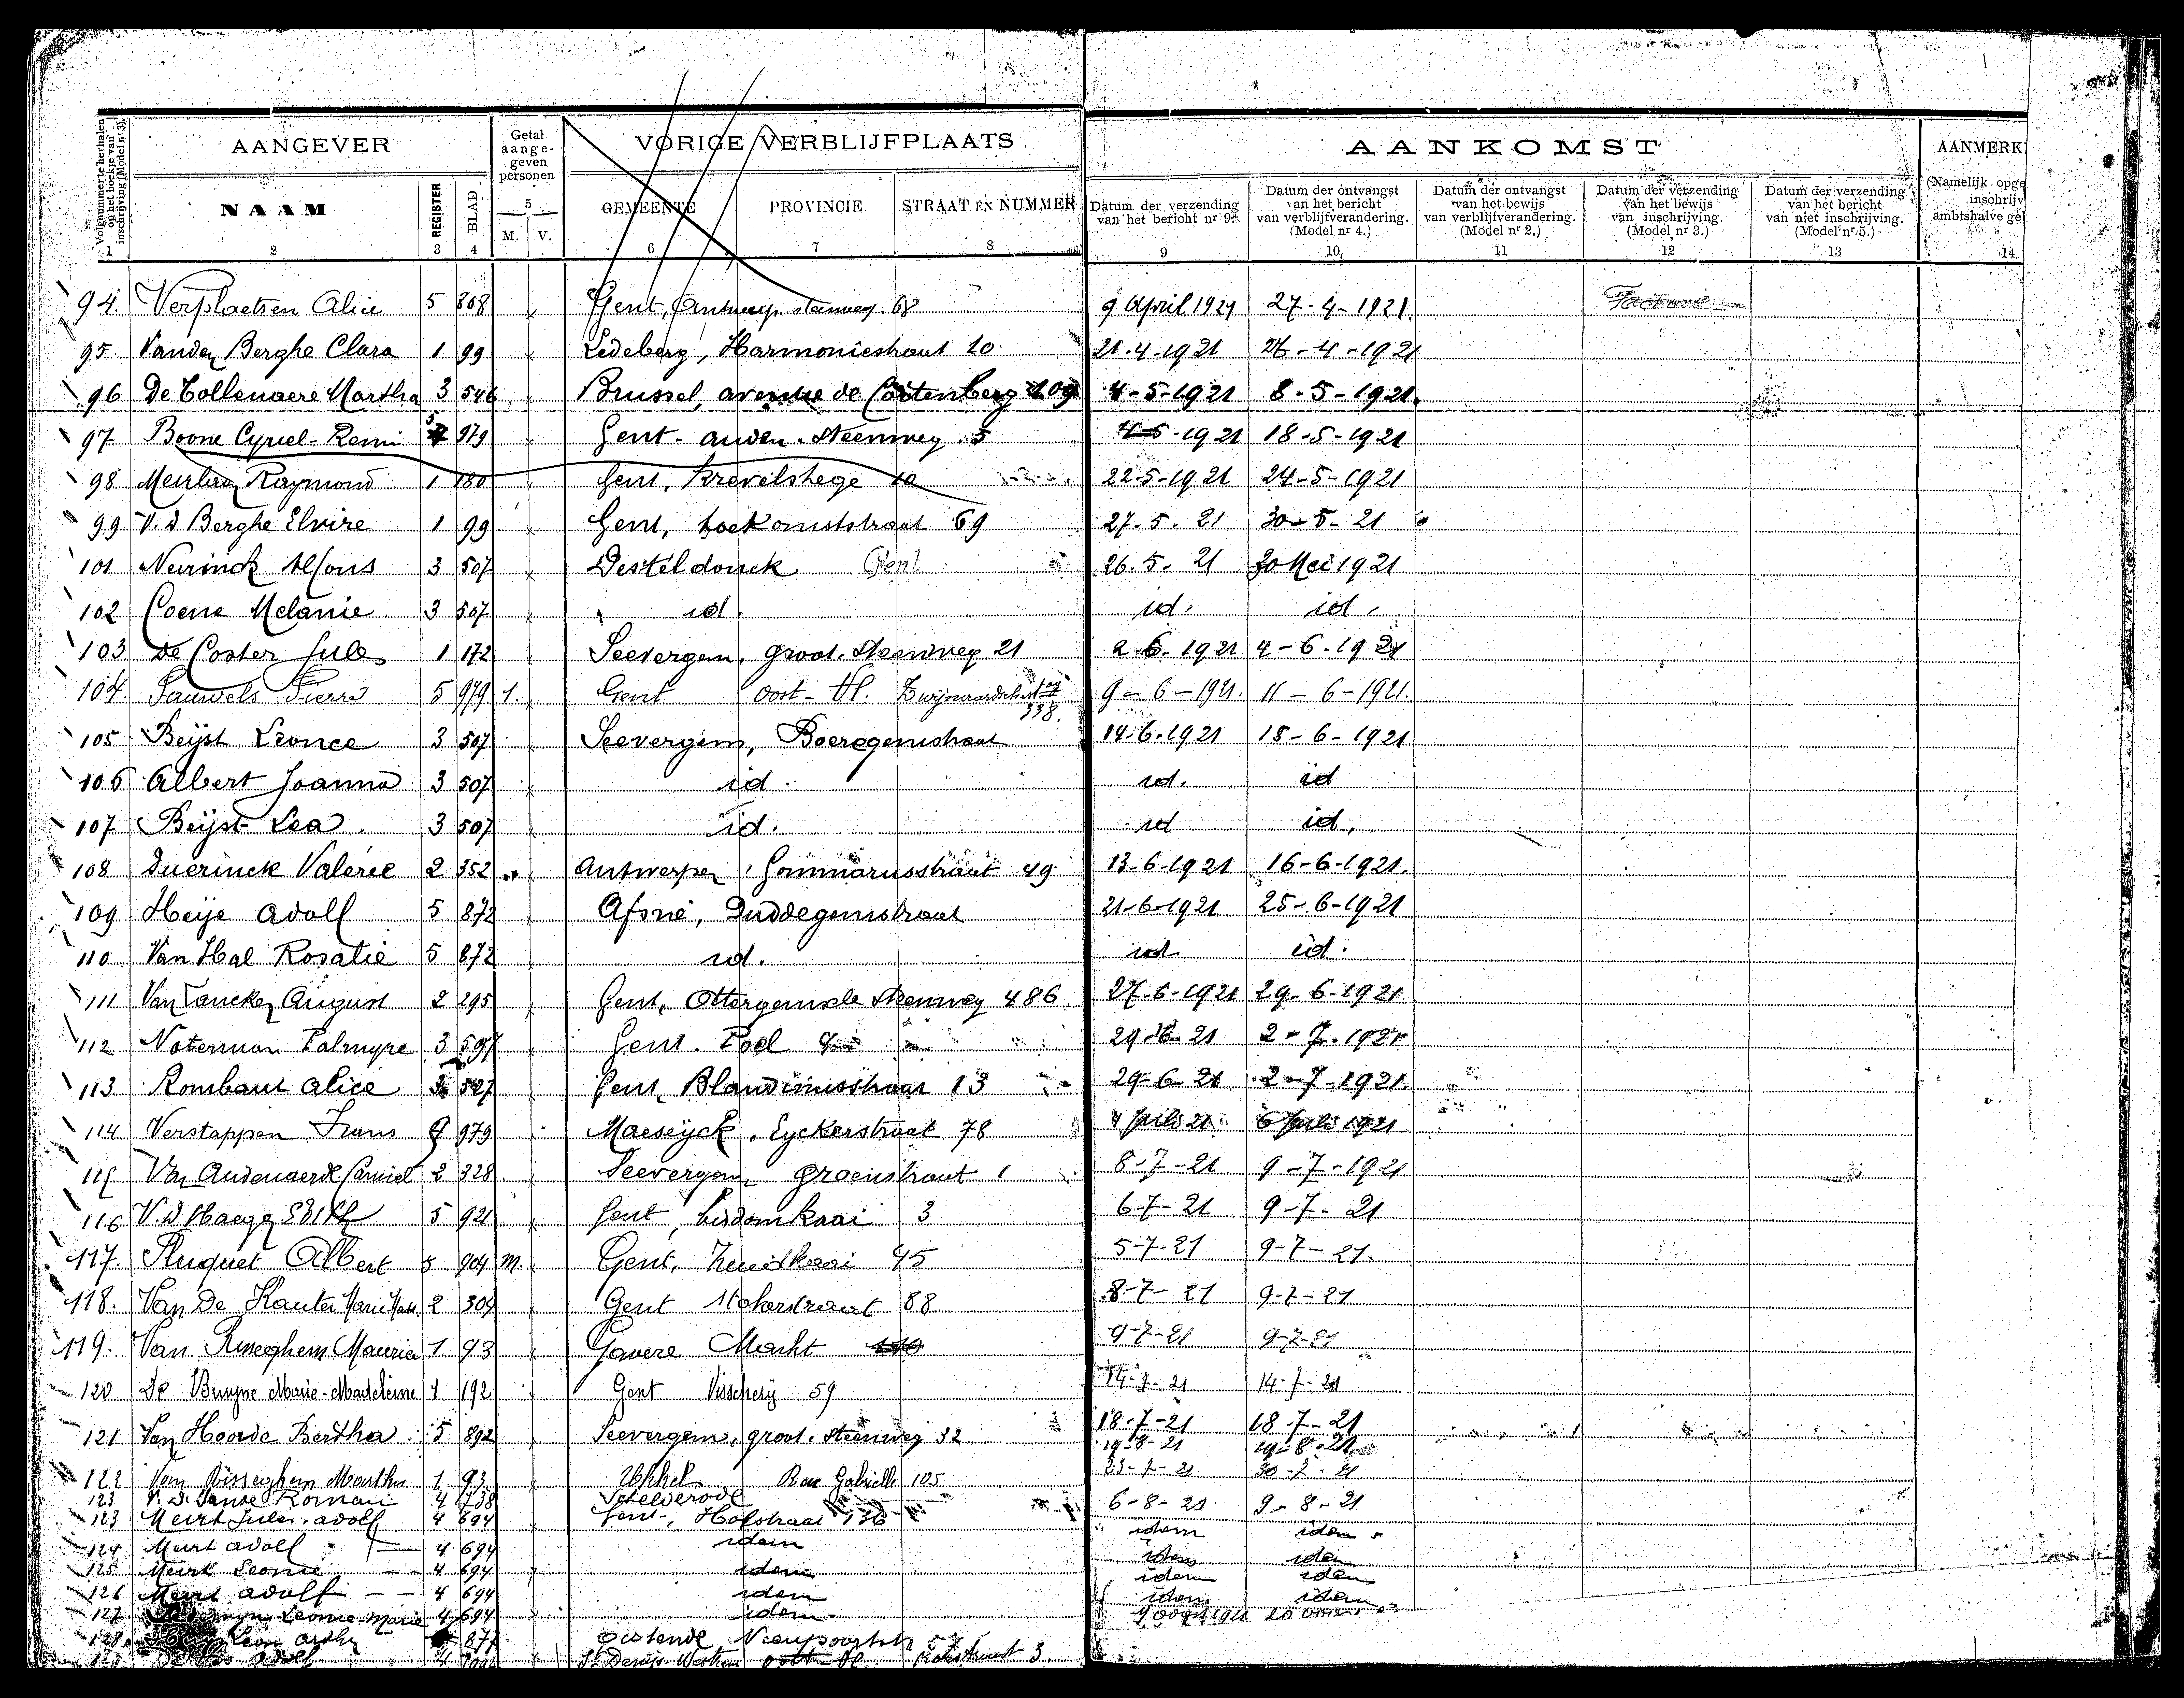 Volgnummer te herhalen op het boekje van inschrijving (Model nr 3).
AANGEVER
Getal aange- geven personen
VORIGE VERBLIJFPLAATS
AANKOMST
AANMERK
NAAM
REGISTER
BLAD
5
M. V.
GEMEENTE
PROVINCIE
STRAAT EN NUMMER
Datum der verzending van het bericht nr 9.
Datum der ontvangst van het bericht van verblijfverandering. (Model nr 4.)
Datum der ontvangst van het bewijs van verblijfverandering. (Model nr 2.)
Datum der verzending van het bewijs van inschrijving. (Model nr 3.)
Datum der verzending van het bericht van niet inschrijving. (Model nr 5.)
(Namelijk opge inschrijv ambtshalve ge
1 2 3 4 6 7 8 9 10 11 12 13 14
94. Verplaetsen Alice 5 868 Gent, Antwerp. steenweg 68 9 April 1921 27-4-1921.
95 Vanden Berghe Clara 1 99 Ledeberg, Harmoniestraat 10 21-4-1921 26-4-1921
96 De Collenaere Martha 3 546 Brussel, avenue de Cortenberg 109 4-5-1921 8-5-1921.
97 Boone Cyriel-Remi 5 979 Gent - auden-steenweg 5 4-5-1921 18-5-1921
98 Raymond 1 180 Gent, 10 22-5-1921 24-5-1921
99 V. d Berghe Elvire 1 99 Gent, toekomststraat 69 27.5.21 30-5-21
101 Neirinck Alfons 3 507 Desteldonck Gent 26.5.21 30 Mei 1921
102 Coene Melanie 3 507 id. id. id.
103 De Coster Jules 1 172 Seevergem, groot. Steenweg 21 2-6-1921 4-6-1921
104. Pauwels Pierre 5 979 1. Gent oost-Vl. 338. 9-6-1921. 11-6-1921.
105 Beijst Leonce 3 507 Seevergem, Boeregemstraat 14-6-1921 15-6-1921
106 Albert Joanna 3 507 id. id. id
107 Beijst Lea 3 507 id. id id.
108 Duerinck Valérie 2 352 Antwerpen, Gommarusstraat 49 13-6-1921 16-6-1921.
109 Heije Adolf 5 872 Afsné, Duddegemstraat 21-6-1921 25-6-1921
110 Van Hal Rosalie 5 872 id. id. id.
111 August 2 295 Gent, Ottergemsche Steenweg 486 27-6-1921 29-6-1921
112 Noterman Palmyre 3 597 Gent. Poel 29-6-21 2-7-1921
113 Rombaut Alice 527 Gent, Blandinusstraat 13 29-6-21 2-7-1921.
114 Verstappen Frans 979 Maeseyck, Eyckerstraat 78 4 Juli 21 6 Juli 1921
115 Van Audenaerde Camiel 2 328 Seevergem, groenstraat 1 8-7-21 9-7-1921
116 V. d Haege 5 921 Gent, bisdomkaai 3 6-7-21 9-7-21
117. Pluquet Albert 5 904 M. Gent, 45 5-7-21 9-7-21.
118. Van De Kauter Marie 2 304 Gent Stokerstraat 88 8-7-21 9-7-21
119. Van Maurice 1 93 Gavere Markt 9-7-21 9-7-21
120 De Bruyne Marie-Madeleine 1 192 Gent Visscherij 59 14-7-21 14-7-21
121 Van Hoorde Bertha 5 892 Seevergem, groot. steenweg 32 18-7-21 18-7-21
19-8-21 19-8-21
122 Van Martha 1 93 Ukkel Rue Gabrielle 105 23-7-21 30-7-21
123 Roman 4 738 Schelderode
123 Meirt Jules. adolf 4 694 Gent-, Hofstraat 136 6-8-21 9-8-21
124 Meirt adolf 4 694 idem idem idem
125 Meirt Leonie 4 694 idem idem idem
126 Meirt adolf 4 694 idem idem idem
127 Leonie-Marie 4 694 idem idem idem
128 Leon 877 Oostende Nieupoortstr 57 1921 20
St Denijs Westrem oost-Vl. 3.